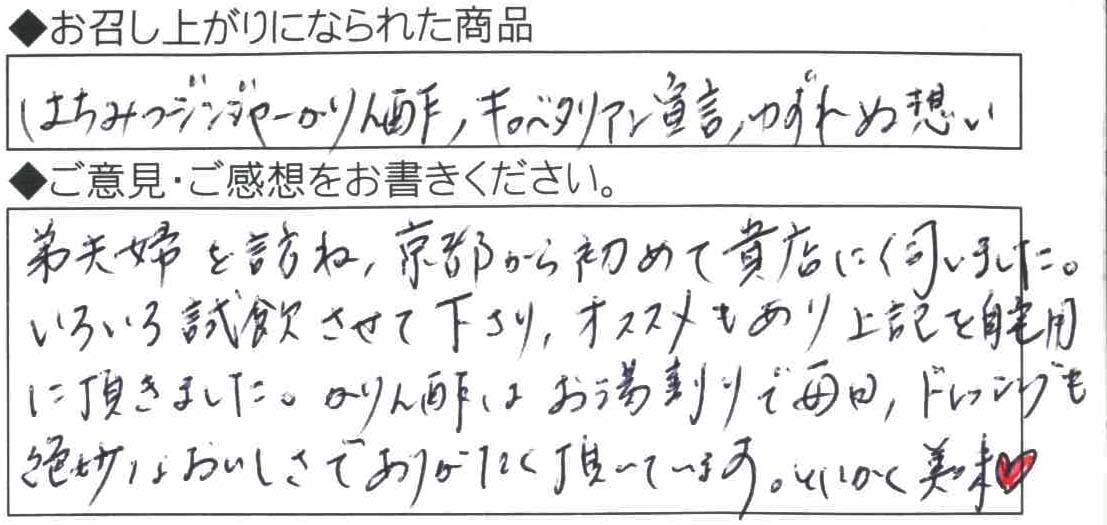 ◆お召し上がりになられた商品
はちみつジンジャーかりん酢,キャベタリアン宣言,ゆずれぬ想い
◆ご意見・ご感想をお書きください。
弟夫婦を訪ね,京都から初めて貴店に伺いました。
いろいろ試飲させて下さり,オススメもあり上記を自宅用
に頂きました。かりん酢はお湯割りで毎日,ドレッシングも
絶妙なおいしさでありがたく頂いています。とにかく美味